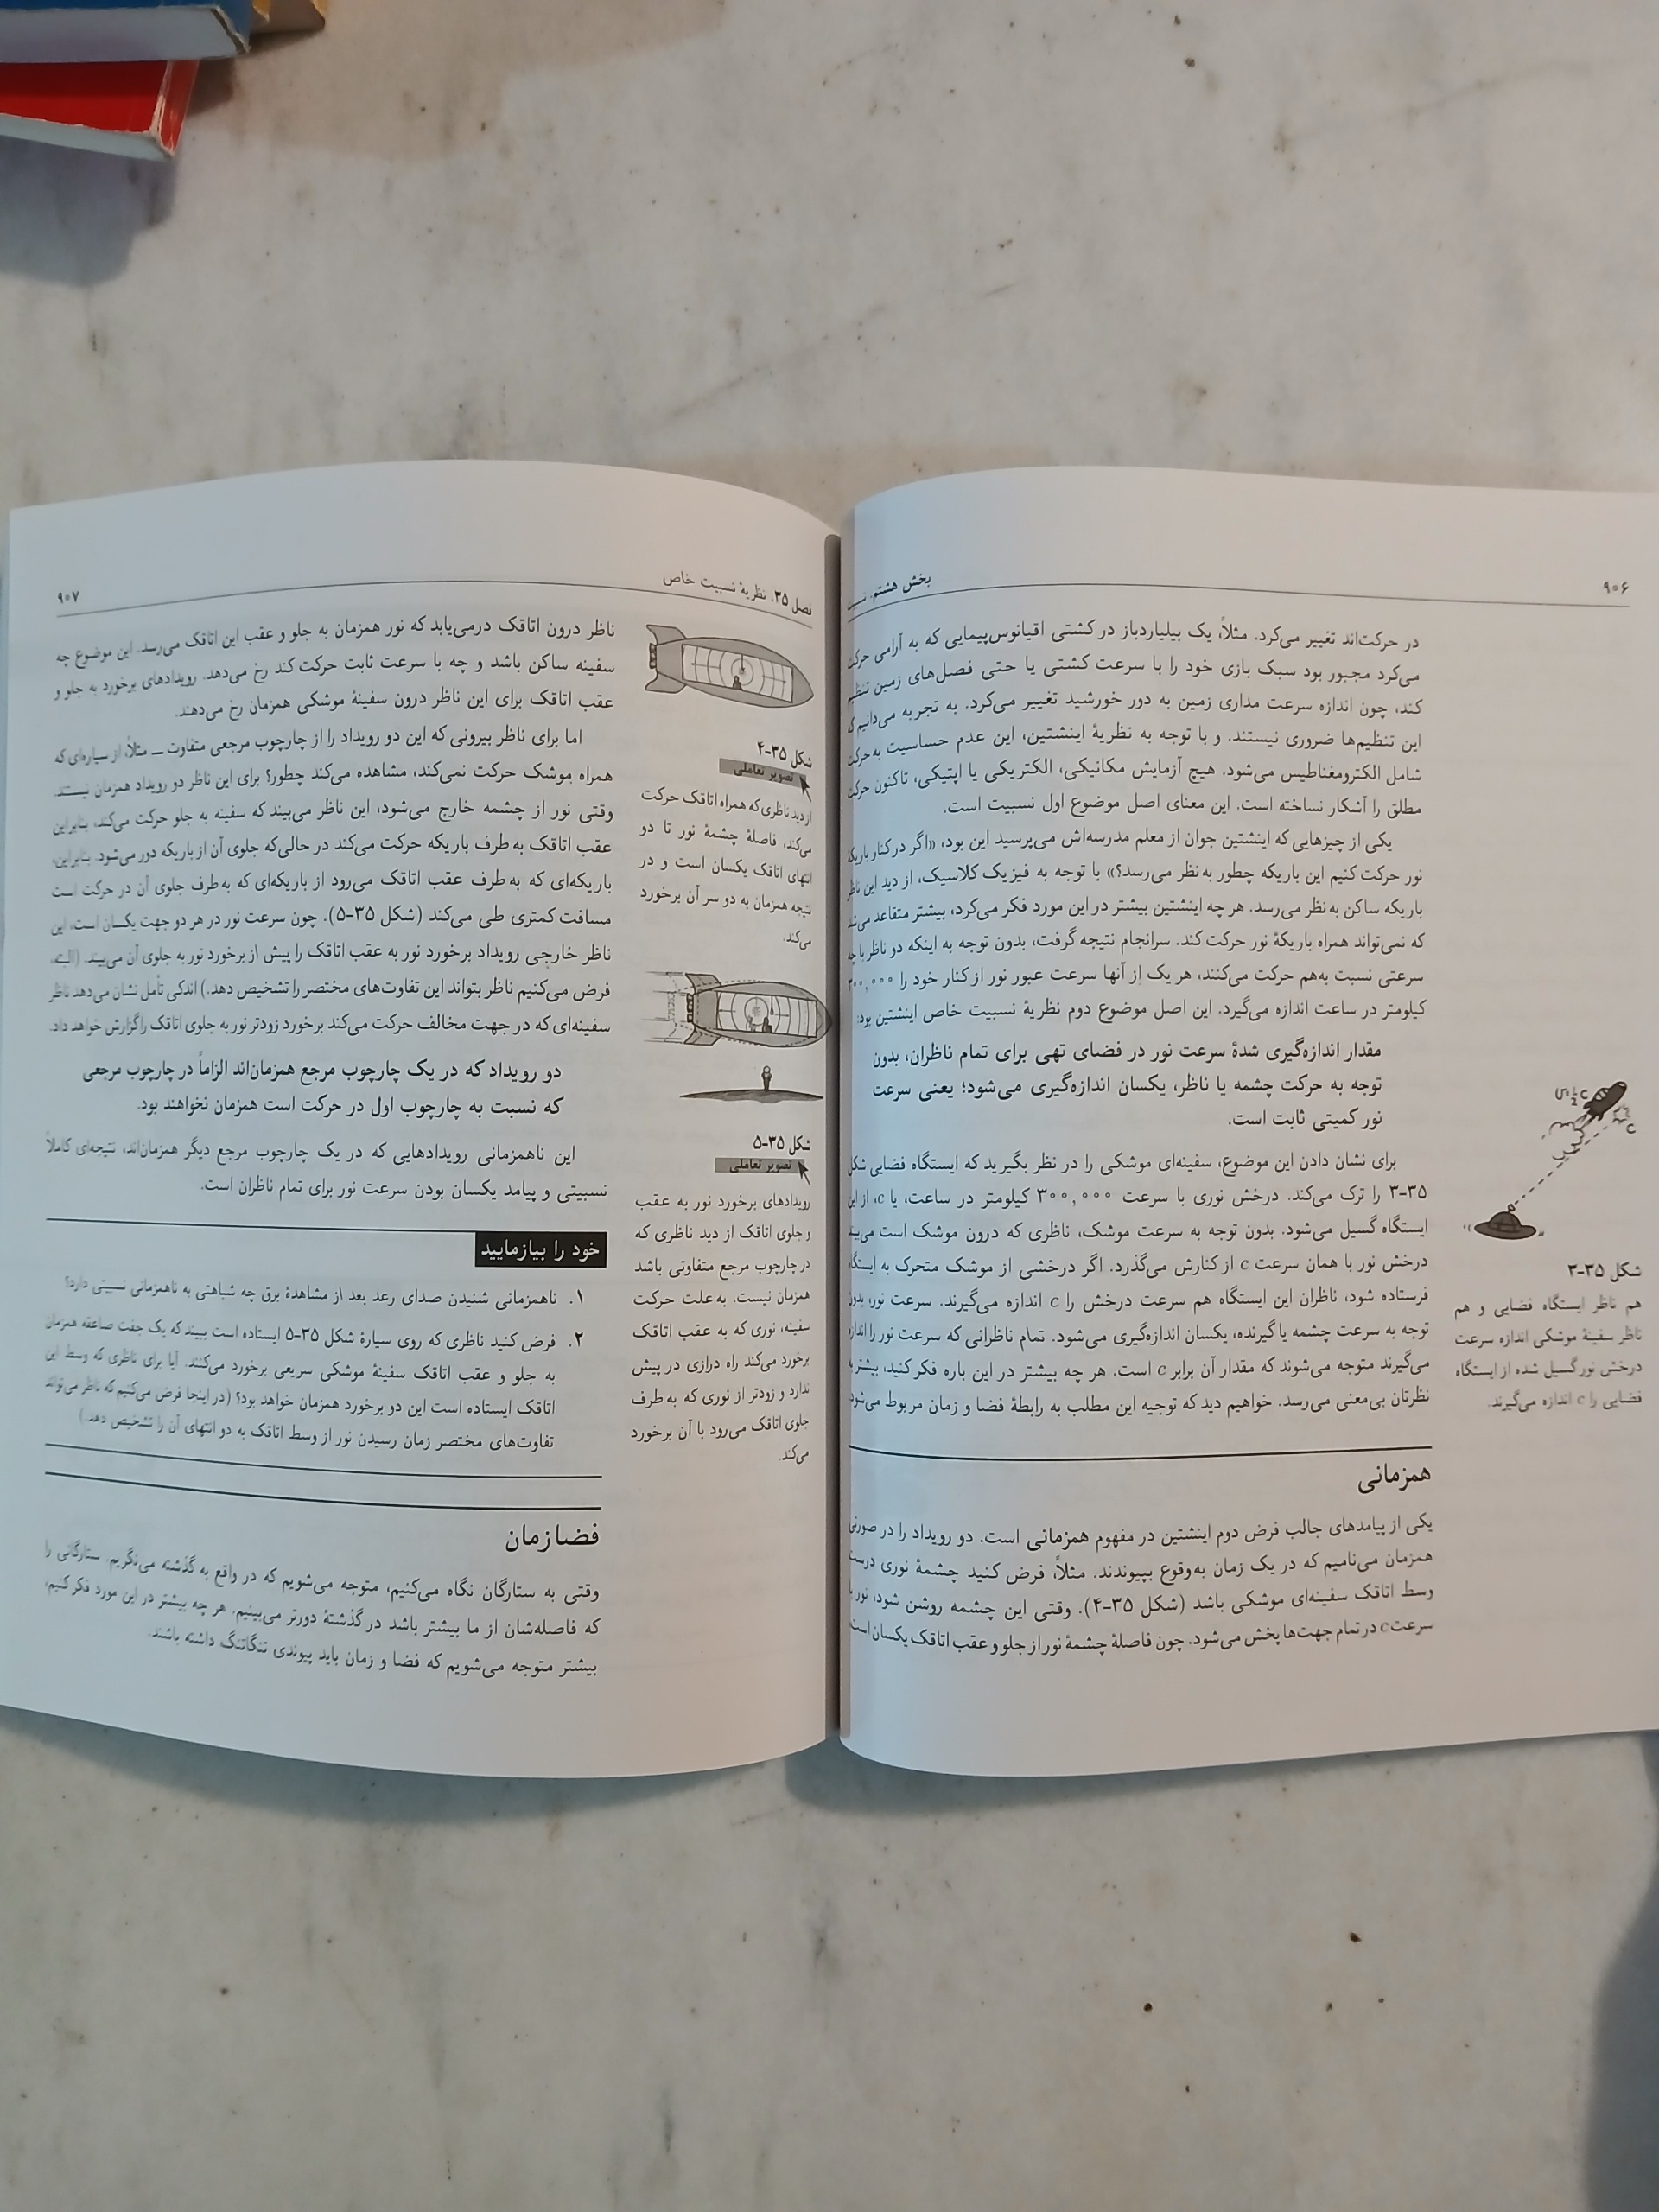 ۹۰۶
بخش هشتم.
در حرکت‌اند تغییر می‌کرد. مثلاً، یک بیلیاردباز در کشتی اقیانوس‌پیمایی که به آرامی حرکت
می‌کرد مجبور بود سبک بازی خود را با سرعت کشتی یا حتی فصل‌های زمین
کند، چون اندازه سرعت مداری زمین به دور خورشید تغییر می‌کرد. به تجربه می‌دانیم
این تنظیم‌ها ضروری نیستند. و با توجه به نظریهٔ اینشتین، این عدم حساسیت به حرکت
شامل الکترومغناطیس می‌شود. هیچ آزمایش مکانیکی، الکتریکی یا اپتیکی، تاکنون حرکت
مطلق را آشکار نساخته است. این معنای اصل موضوع اول نسبیت است.
یکی از چیزهایی که اینشتین جوان از معلم مدرسه‌اش می‌پرسید این بود، «اگر در کنار باریکهٔ
نور حرکت کنیم این باریکه چطور به‌نظر می‌رسد؟» با توجه به فیزیک کلاسیک، از دید این ناظر
باریکه ساکن به‌نظر می‌رسد. هر چه اینشتین بیشتر در این مورد فکر می‌کرد، بیشتر متقاعد می‌شد
که نمی‌تواند همراه باریکهٔ نور حرکت کند. سرانجام نتیجه گرفت، بدون توجه به اینکه دو ناظر با چه
سرعتی نسبت به‌هم حرکت می‌کنند، هر یک از آنها سرعت عبور نور از کنار خود را ۳۰۰٬۰۰۰
کیلومتر در ساعت اندازه می‌گیرد. این اصل موضوع دوم نظریهٔ نسبیت خاص اینشتین بود:
مقدار اندازه‌گیری شدهٔ سرعت نور در فضای تهی برای تمام ناظران، بدون
توجه به حرکت چشمه یا ناظر، یکسان اندازه‌گیری می‌شود؛ یعنی سرعت
نور کمیتی ثابت است.
برای نشان دادن این موضوع، سفینه‌ای موشکی را در نظر بگیرید که ایستگاه فضایی شکل
۳۵-۳ را ترک می‌کند. درخش نوری با سرعت ۳۰۰٬۰۰۰ کیلومتر در ساعت، یا c، از این
ایستگاه گسیل می‌شود. بدون توجه به سرعت موشک، ناظری که درون موشک است می‌بیند
درخش نور با همان سرعت c از کنارش می‌گذرد. اگر درخشی از موشک متحرک به ایستگاه
فرستاده شود، ناظران این ایستگاه هم سرعت درخش را c اندازه می‌گیرند. سرعت نور، بدون
توجه به سرعت چشمه یا گیرنده، یکسان اندازه‌گیری می‌شود. تمام ناظرانی که سرعت نور را اندازه
می‌گیرند متوجه می‌شوند که مقدار آن برابر c است. هر چه بیشتر در این باره فکر کنید، بیشتر به
نظرتان بی‌معنی می‌رسد. خواهیم دید که توجیه این مطلب به رابطهٔ فضا و زمان مربوط می‌شود
همزمانی
یکی از پیامدهای جالب فرض دوم اینشتین در مفهوم همزمانی است. دو رویداد را در صورتی
همزمان می‌نامیم که در یک زمان به‌وقوع بپیوندند. مثلاً، فرض کنید چشمهٔ نوری درست
وسط اتاقک سفینه‌ای موشکی باشد (شکل ۳۵-۴). وقتی این چشمه روشن شود، نور با
سرعت c در تمام جهت‌ها پخش می‌شود. چون فاصلهٔ چشمهٔ نور از جلو و عقب اتاقک یکسان است،
c
شکل ۳۵-۳
هم ناظر ایستگاه فضایی و هم
ناظر سفینهٔ موشکی اندازه سرعت
درخش نور گسیل شده از ایستگاه
فضایی را c اندازه می‌گیرند.
فصل ۳۵. نظریهٔ نسبیت خاص
۹۰۷
شکل ۳۵-۴
تصویر تعاملی
از دید ناظری که همراه اتاقک حرکت
می‌کند، فاصلهٔ چشمهٔ نور تا دو
انتهای اتاقک یکسان است و در
نتیجه همزمان به دو سر آن برخورد
می‌کند.
شکل ۳۵-۵
تصویر تعاملی
رویدادهای برخورد نور به عقب
و جلوی اتاقک از دید ناظری که
در چارچوب مرجع متفاوتی باشد
همزمان نیست. به علت حرکت
سفینه، نوری که به عقب اتاقک
برخورد می‌کند راه درازی در پیش
ندارد و زودتر از نوری که به طرف
جلوی اتاقک می‌رود با آن برخورد
می‌کند.
ناظر درون اتاقک درمی‌یابد که نور همزمان به جلو و عقب این اتاقک می‌رسد. این موضوع چه
سفینه ساکن باشد و چه با سرعت ثابت حرکت کند رخ می‌دهد. رویدادهای برخورد به جلو و
عقب اتاقک برای این ناظر درون سفینهٔ موشکی همزمان رخ می‌دهند.
اما برای ناظر بیرونی که این دو رویداد را از چارچوب مرجعی متفاوت ــ مثلاً، از سیاره‌ای که
همراه موشک حرکت نمی‌کند، مشاهده می‌کند چطور؟ برای این ناظر دو رویداد همزمان نیستند.
وقتی نور از چشمه خارج می‌شود، این ناظر می‌بیند که سفینه به جلو حرکت می‌کند، بنابراین
عقب اتاقک به طرف باریکه حرکت می‌کند در حالی‌که جلوی آن از باریکه دور می‌شود. بنابراین،
باریکه‌ای که به طرف عقب اتاقک می‌رود از باریکه‌ای که به طرف جلوی آن در حرکت است
مسافت کمتری طی می‌کند (شکل ۳۵-۵). چون سرعت نور در هر دو جهت یکسان است، این
ناظر خارجی رویداد برخورد نور به عقب اتاقک را پیش از برخورد نور به جلوی آن می‌بیند. (البته،
فرض می‌کنیم ناظر بتواند این تفاوت‌های مختصر را تشخیص دهد.) اندکی تأمل نشان می‌دهد ناظر
سفینه‌ای که در جهت مخالف حرکت می‌کند برخورد زودتر نور به جلوی اتاقک را گزارش خواهد داد.
دو رویداد که در یک چارچوب مرجع همزمان‌اند الزاماً در چارچوب مرجعی
که نسبت به چارچوب اول در حرکت است همزمان نخواهند بود.
این ناهمزمانی رویدادهایی که در یک چارچوب مرجع دیگر همزمان‌اند، نتیجه‌ای کاملاً
نسبیتی و پیامد یکسان بودن سرعت نور برای تمام ناظران است.
خود را بیازمایید
۱. ناهمزمانی شنیدن صدای رعد بعد از مشاهدهٔ برق چه شباهتی به ناهمزمانی نسبیتی دارد؟
۲. فرض کنید ناظری که روی سیارهٔ شکل ۳۵-۵ ایستاده است ببیند که یک جفت صاعقه همزمان
به جلو و عقب اتاقک سفینهٔ موشکی سریعی برخورد می‌کنند. آیا برای ناظری که وسط این
اتاقک ایستاده است این دو برخورد همزمان خواهد بود؟ (در اینجا فرض می‌کنیم که ناظر می‌تواند
تفاوت‌های مختصر زمان رسیدن نور از وسط اتاقک به دو انتهای آن را تشخیص دهد.)
فضازمان
وقتی به ستارگان نگاه می‌کنیم، متوجه می‌شویم که در واقع به گذشته می‌نگریم. ستارگانی را
که فاصله‌شان از ما بیشتر باشد در گذشتهٔ دورتر می‌بینیم. هر چه بیشتر در این مورد فکر کنیم،
بیشتر متوجه می‌شویم که فضا و زمان باید پیوندی تنگاتنگ داشته باشند.